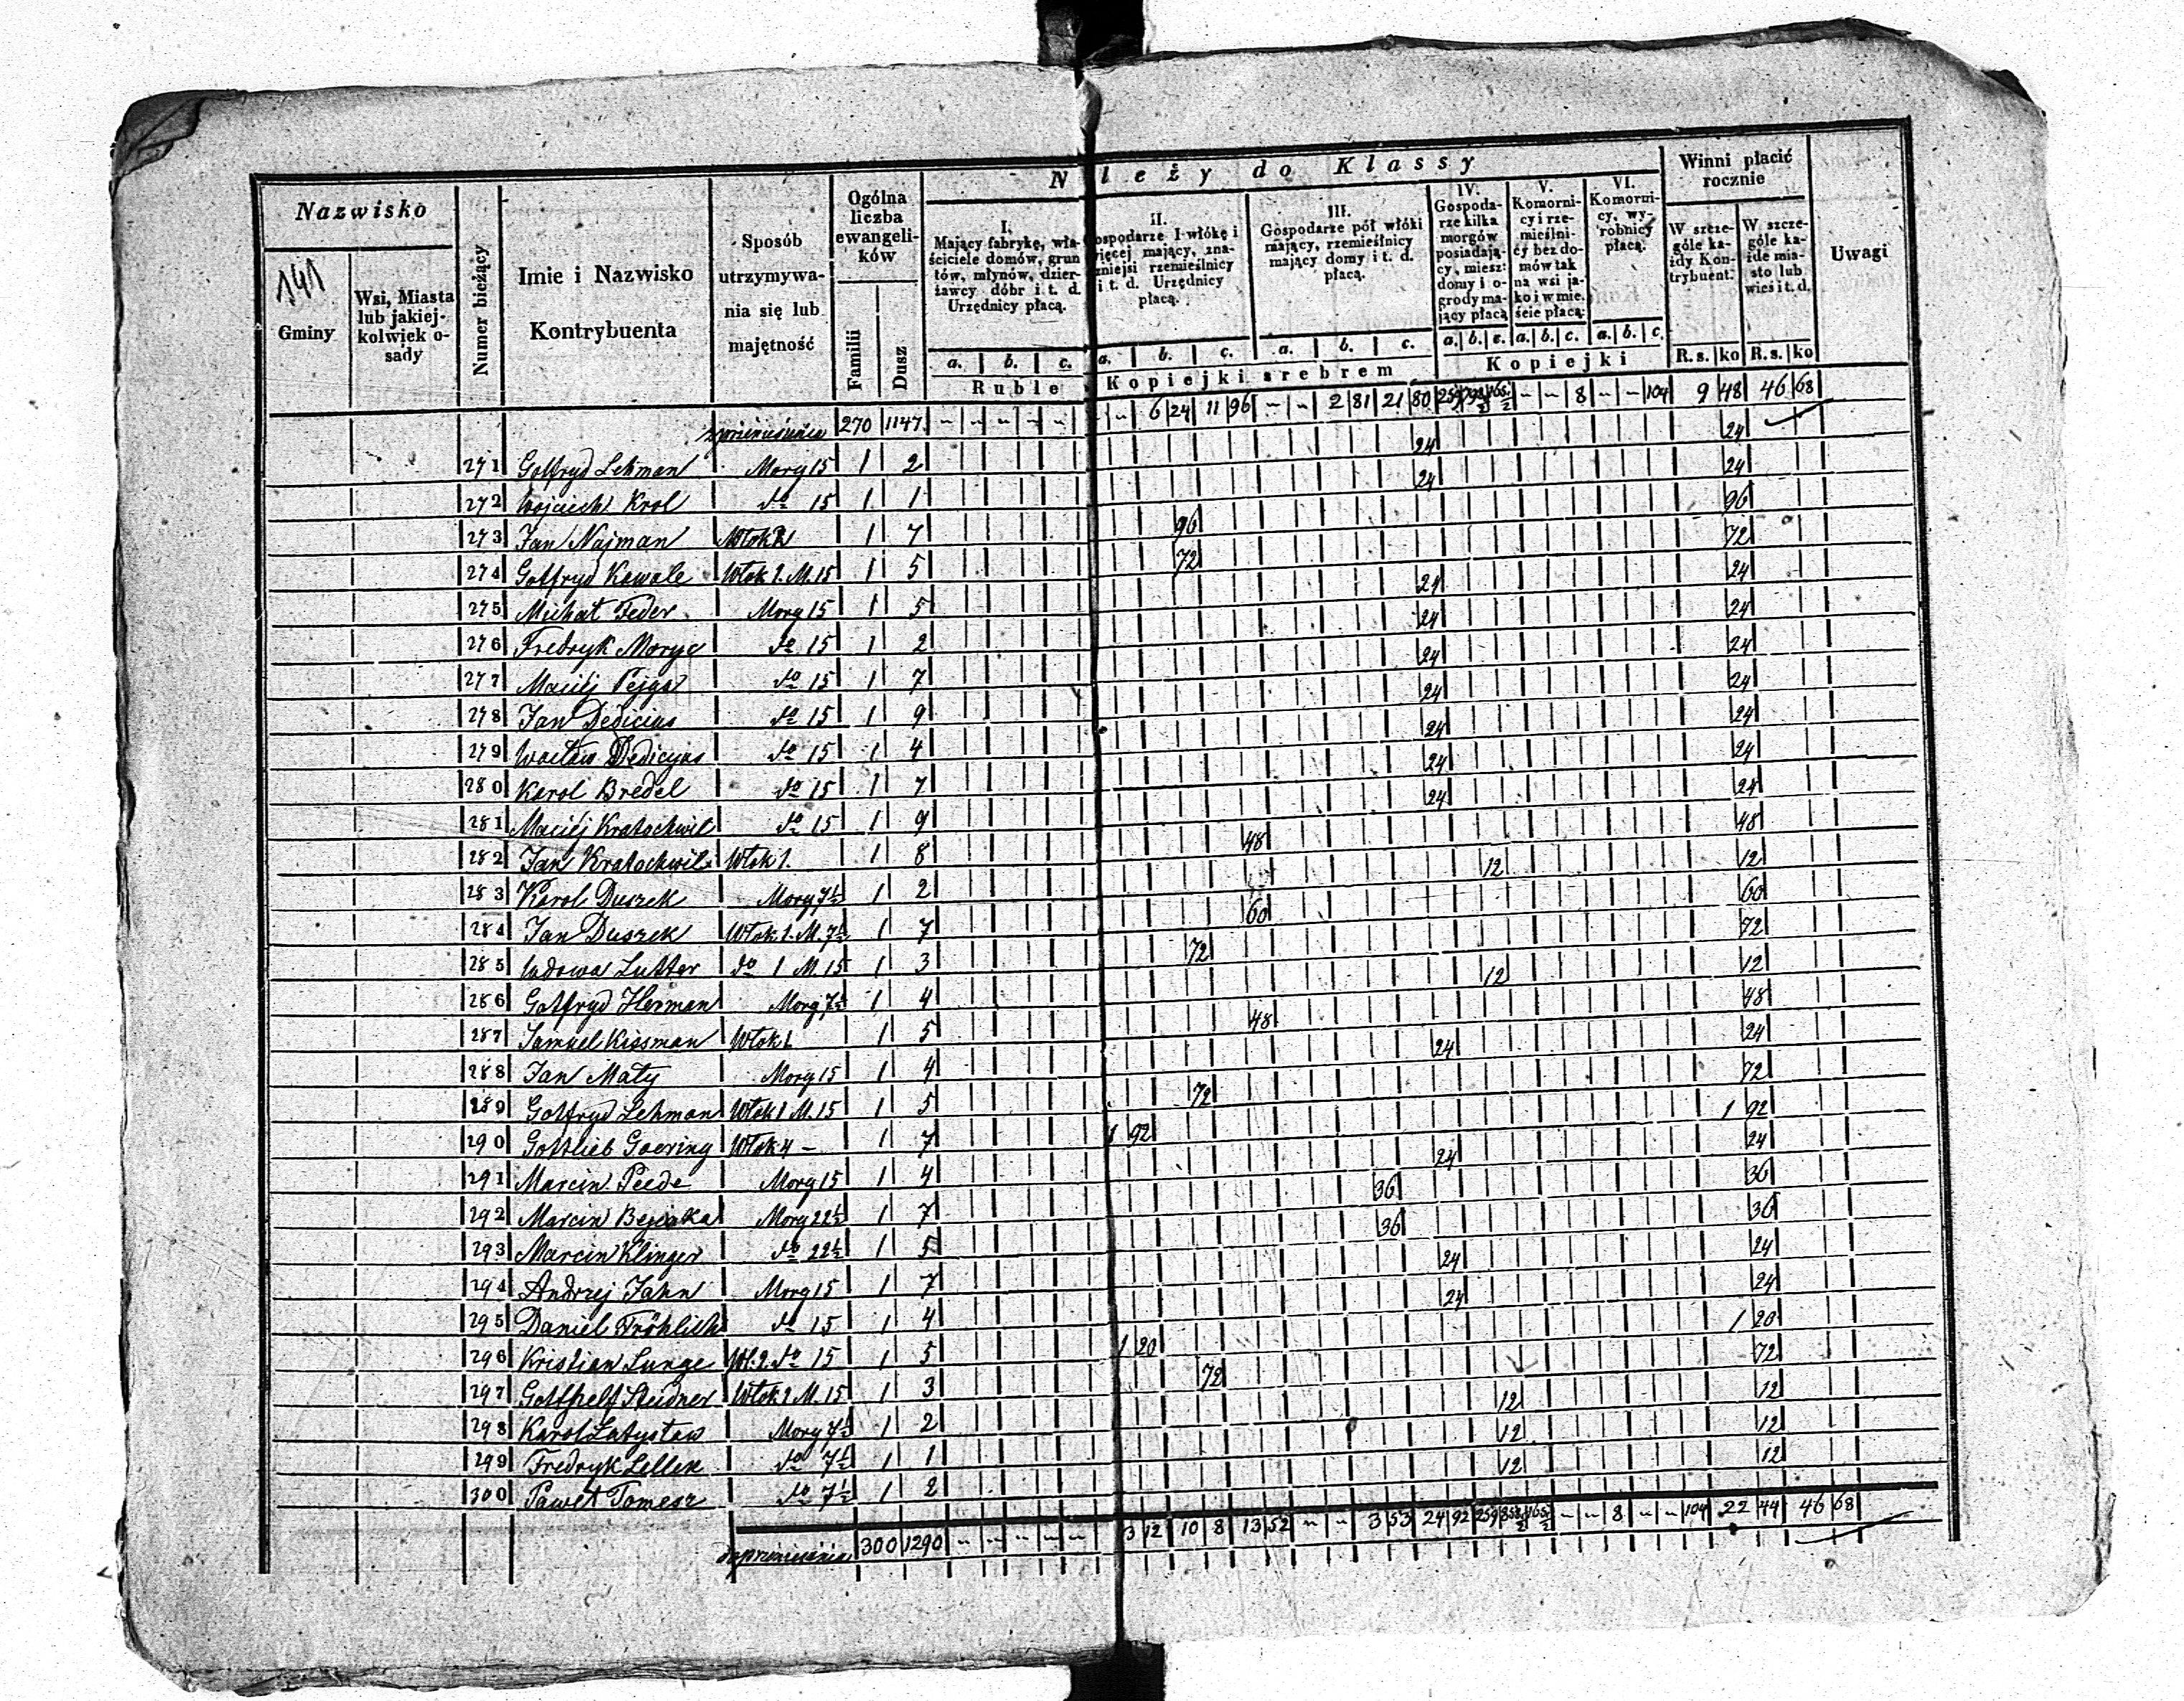 141
Nazwisko
Gminy
Wsi, Miasta lub jakiej-kolwiek o-sady
Numer bieżący
Imie i Nazwisko Kontrybuenta
Sposób utrzymywa-nia się lub majętność
Ogólna liczba ewangeli-ków
Familii
Dusz
Należy do Klassy
I. Mający fabrykę, wła-ściciele domów, grun tów, młynów, dzier-żawcy dóbr i t. d. Urzędnicy płacą.
II. ospodarze I włókę i więcej mający, zna-zniejsi rzemieślnicy i t. d. Urzędnicy płacą.
III. Gospodarze pół włóki mający, rzemieślnicy mający domy i t. d. płacą.
IV. Gospoda-rze kilka morgów posiadają-cy, miesz: domy i o-grody ma-jący płacą
V. Komorni-cy i rze-mieślni-cy bez do-mów tak na wsi ja-ko i w mie. ście płacą:
VI. Komorni-cy, wy-robnicy płacą.
Winni płacić rocznie
W szcze-góle ka-żdy Kon-trybuent.
W szcze-góle ka-żde mia-sto lub wieś i t. d.
Uwagi
a. b. c. a. b. c. a. b. c. a. b. c. a. b. c. a. b. c.
Ruble Kopiejki srebrem Kopiejki R.s. ko R.s. ko
z przeniesienia 270 1147 6 24 11 96 2 81 21 80 8 104 9 48 46 68
271 Gotfryd Lehman Morg 15 1 2 24 24
272 Wojciech Krol do 15 1 1 24 24
273 Jan Najman Włok 2 1 7 96 96
274 Gotfryd Kowale Włok 1. M. 15 1 5 72 72
275 Michał Feder Morg 15 1 5 24 24
276 Fredryk Moryc do 15 1 2 24 24
277 Maciéj Pejga do 15 1 7 24 24
278 Jan Dedicius do 15 1 9 24 24
279 Wacław Dedicyus do 15 1 4 24 24
280 Karol Bredel do 15 1 7 24 24
281 Maciéj Kratochwil do 15 1 9 24 24
282 Jan Kratochwil Włok 1. 1 8 48 48
283 Karol Duszek Morg 7½ 1 2 12 12
284 Jan Duszek Włok. 1. M. 7½ 1 7 60 60
285 Wdowa Lutter do 1 M. 15 1 3 72 72
286 Gotfryd Herman Morg 7½ 1 4 12 12
287 Samuel Kissman Włok 1 1 5 48 48
288 Jan Mały Morg 15 1 4 24 24
289 Gotfryd Lehman Włok 1 M. 15 1 5 72 72
290 Gottlieb Goering Włok 4 – 1 7 1 92 1 92
291 Marcin Peede Morg 15 1 4 24 24
292 Marcin Morg 22½ 1 7 36 36
293 Marcin Klinger do 22½ 1 5 36 36
294 Andrzej Jahn Morg 15 1 7 24 24
295 Daniel Fröhlich do 15 1 4 24 24
296 Kristian Lange Wł. 2. do 15 1 5 1 20 1 20
297 Gotthelf Steidner Włok 1 M. 15 1 3 72 72
298 Karol Latysław Morg 7½ 1 2 12 12
299 Fredryk Lellek do 7½ 1 1 12 12
300 Paweł Tomesz do 7½ 1 2 12 12
do przeniesienia 300 1290 3 12 10 8 13 52 3 53 24 92 8 104 22 44 46 68